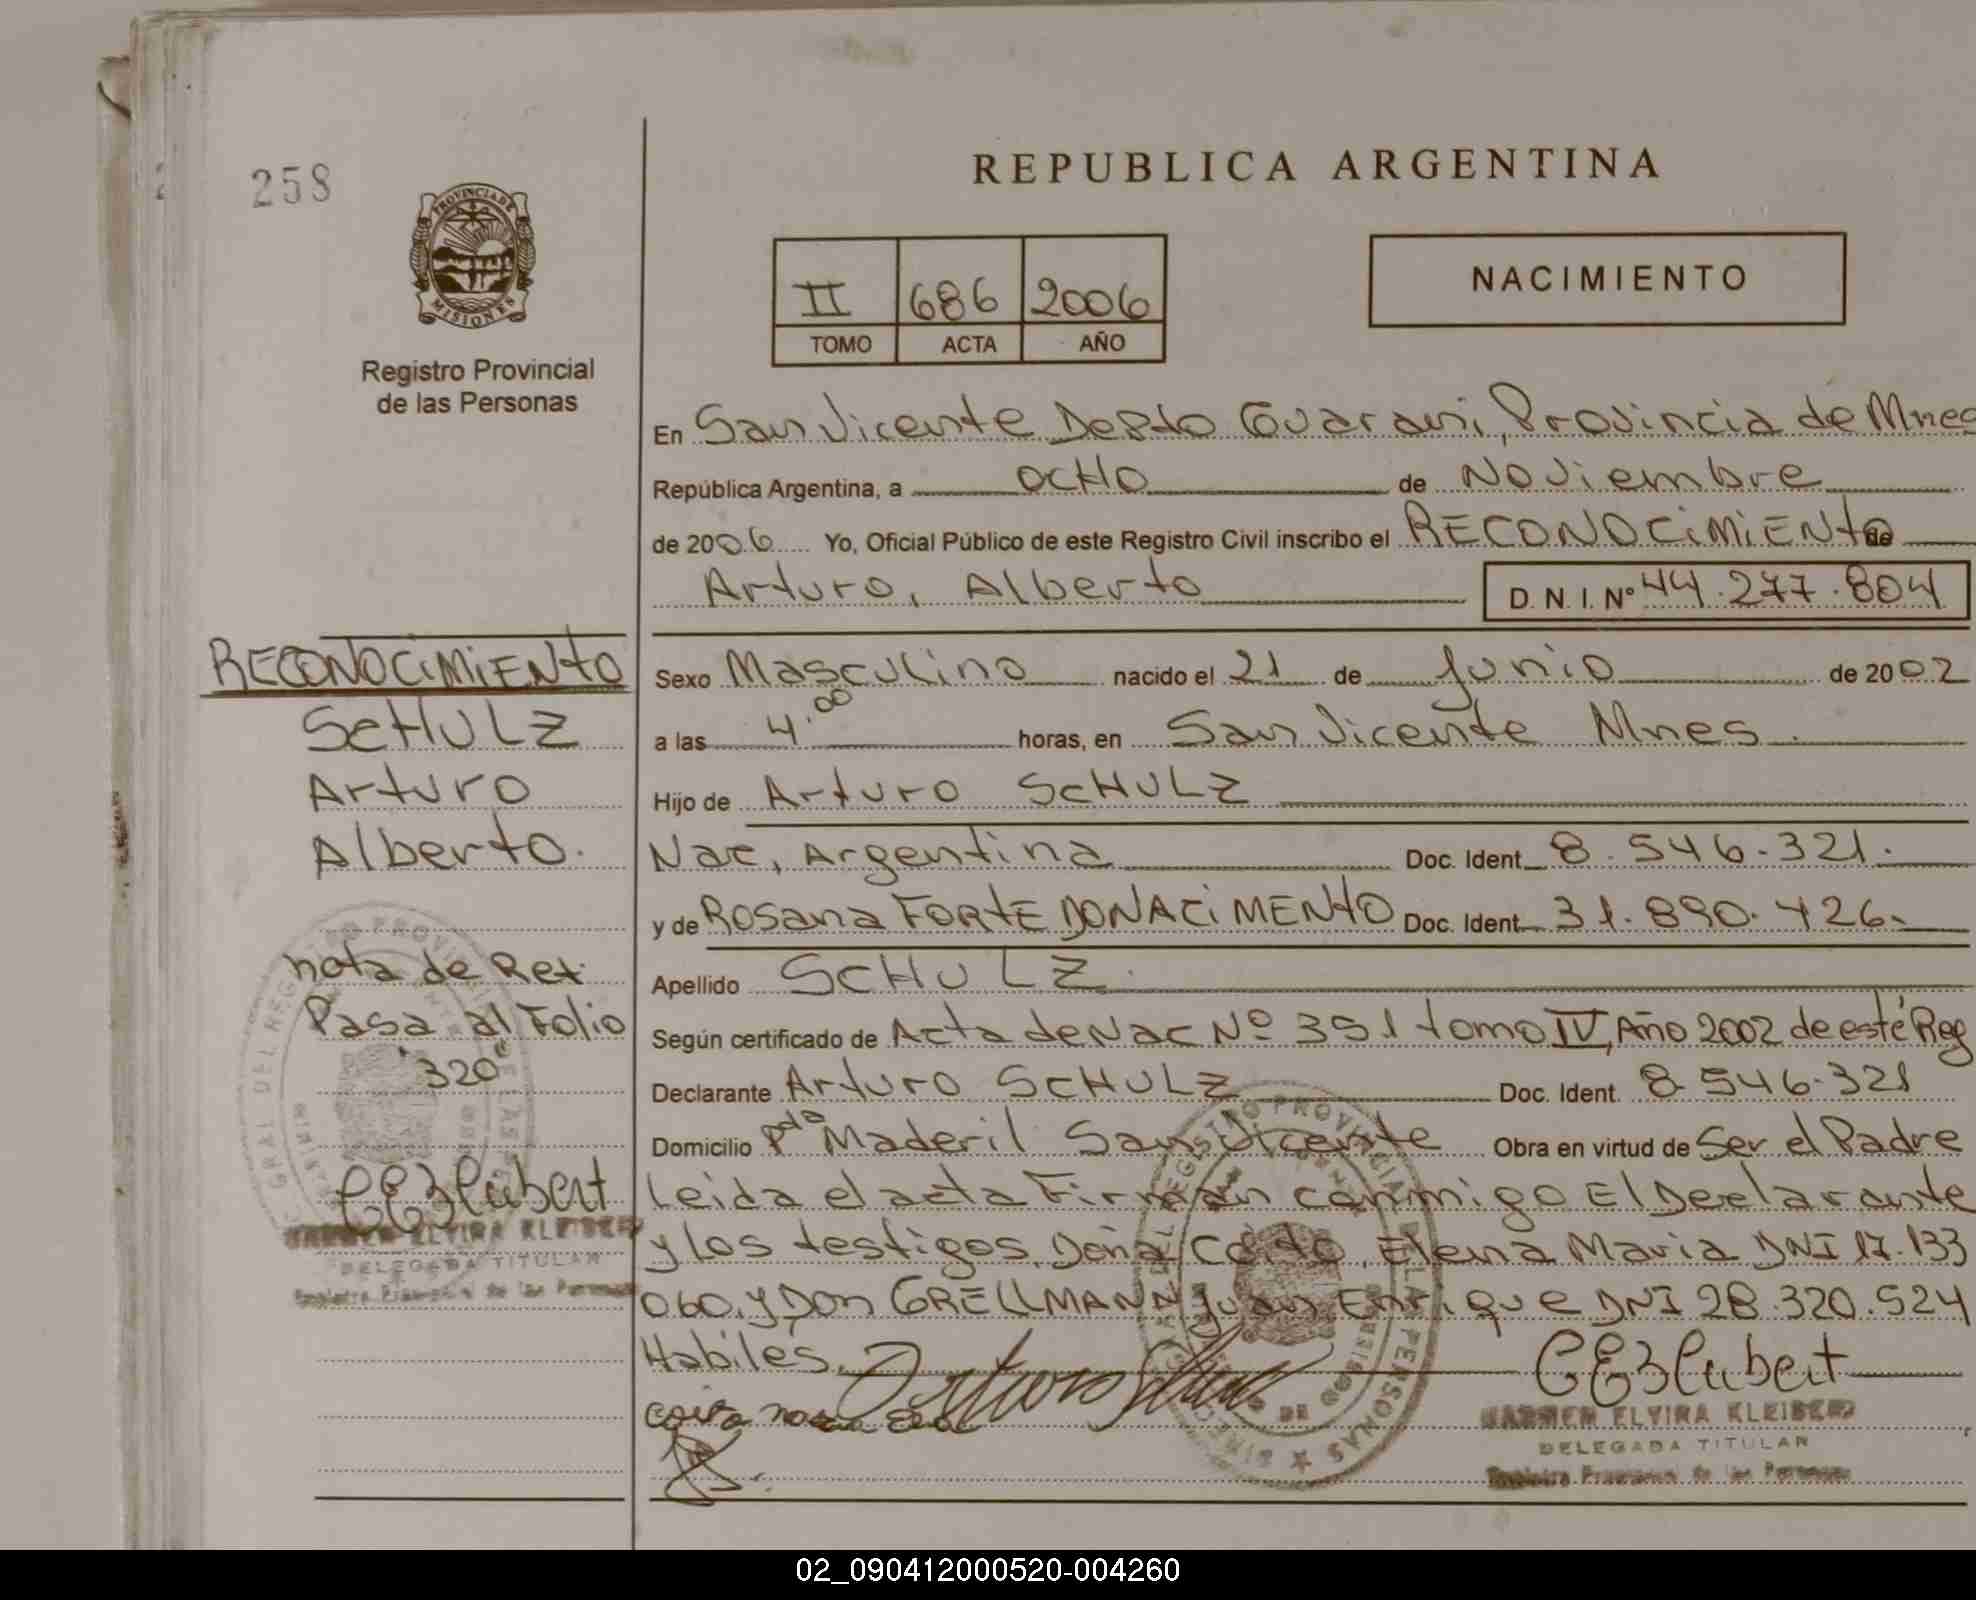 258
REPUBLICA ARGENTINA
PROVINCIA DE MISIONES
Registro Provincial
de las Personas
II 686 2006
TOMO ACTA AÑO
NACIMIENTO
En San Vicente Depto Guarani, Provincia de Mnes
República Argentina, a OCHO de Noviembre
de 2006 Yo, Oficial Público de este Registro Civil inscribo el RECONOCIMIENTO de
Arturo, Alberto D. N. I. Nº 44.277.804
Sexo Masculino nacido el 21 de Junio de 2002
a las 4.00 horas, en San Vicente Mnes.
Hijo de Arturo SCHULZ
Nac, Argentina Doc. Ident. 8.546.321.
y de Rosana FORTE DONACIMENTO Doc. Ident. 31.890.426.
Apellido SCHULZ.
Según certificado de Acta de Nac Nº 351 tomo IV, Año 2002 de este Reg
Declarante Arturo SCHULZ Doc. Ident. 8.546.321
Domicilio Pdo Maderil San Vicente Obra en virtud de Ser el Padre
Leida el acta Firman conmigo El Declarante
y los testigos Doña Elena Maria DNI 17.133
060. y Don GRELLMANN Juan Enrique DNI 28.320.524
Habiles.
RECONOCIMIENTO
SCHULZ
Arturo
Alberto.
nota de Ret
Pasa al Folio
320
CARMEN ELVIRA KLEIBERT
DELEGADA TITULAR
Registro Provincial de las Personas
CARMEN ELVIRA KLEIBERT
DELEGADA TITULAR
Registro Provincial de las Personas
02_090412000520-004260